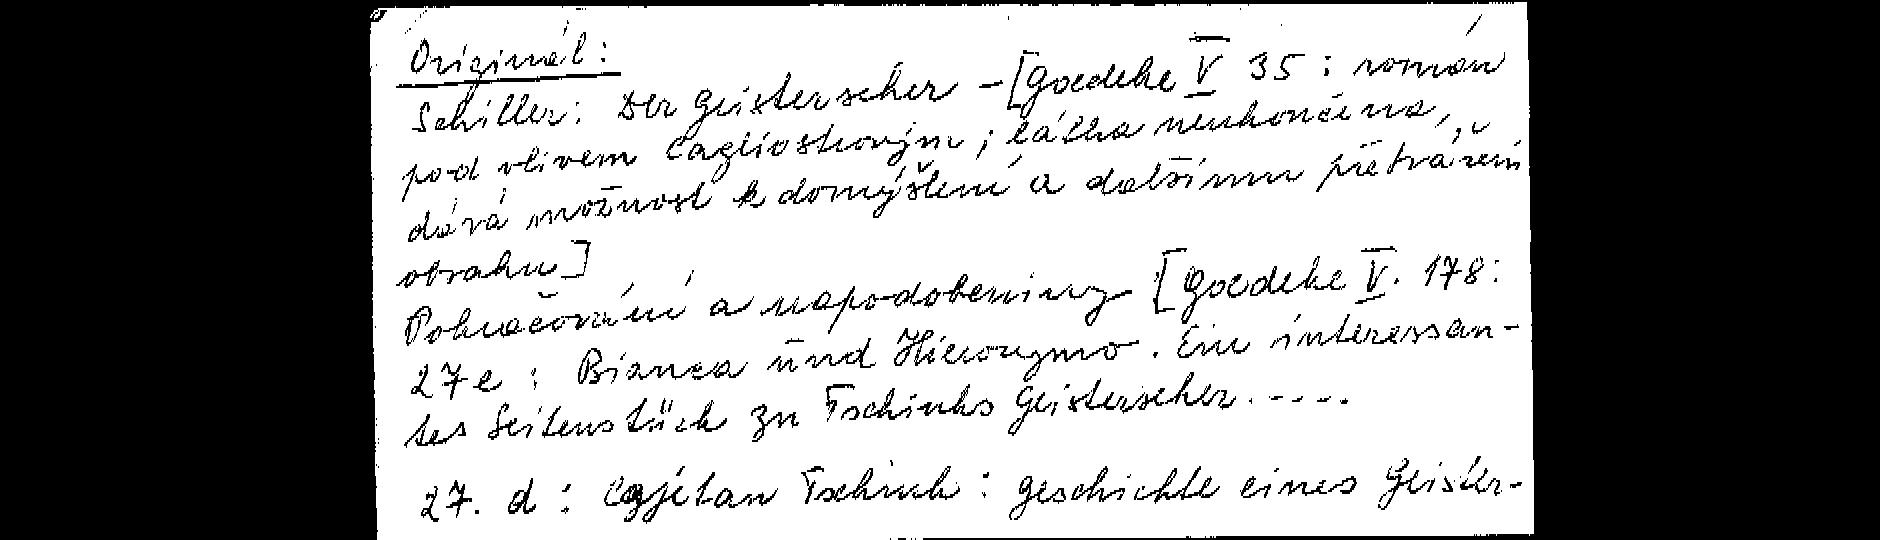 Originál:
Schiller: Der Geisterseher - [Goedeke V 35: román
pod vlivem Cagliostrovým; látka neukončena,
dává možnost k domýšlení a dalšímu přetváření
obsahu]
Pokračování a napodobeniny [Goedeke V. 178:
27e: Bianca und Hieronymo. Ein interessan-
tes Seitenstück zu Tschinks Geisterseher.----.
27. d: Cajetan Tschink: Geschichte eines Geister-